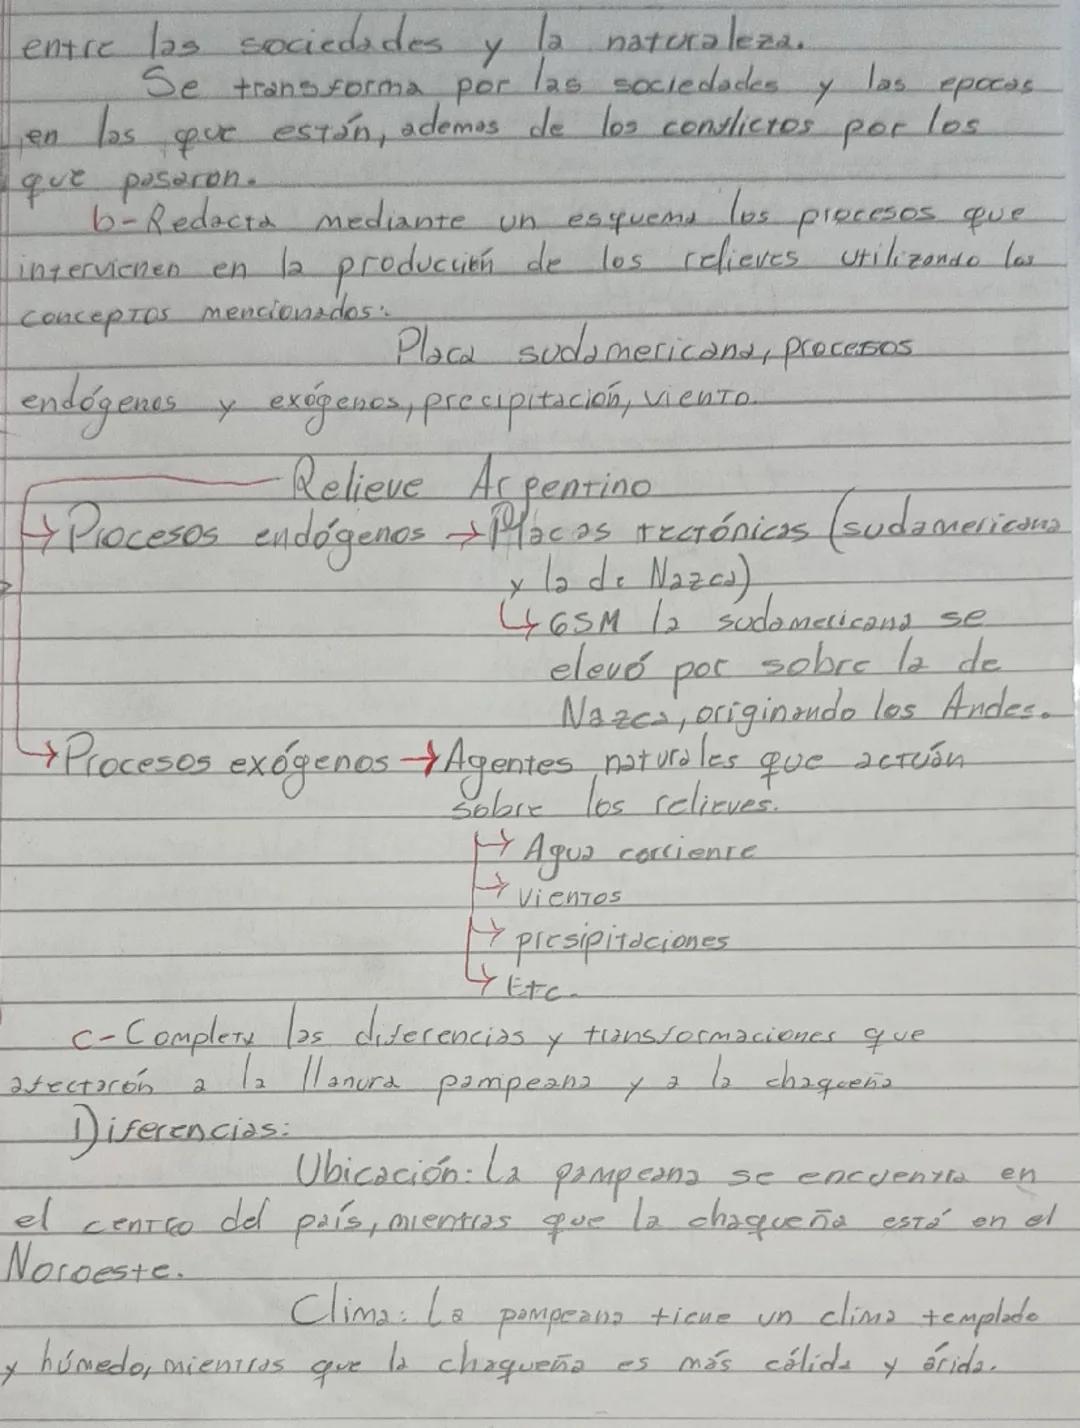 entre las sociedades y la naturaleza.
Se transforma por las sociedades y las epocas
en las que están, ademas de los conflictos por los
que pasaron.
b-Redacta mediante un esquema los procesos que
intervienen en la producción de los relieves utilizando los
conceptos mencionados:
Placa sudamericana, procesos
endógenos y exógenos, precipitación, viento.
Relieve Argentino
→Procesos endógenos →Placas tectónicas (sudamericana
y la de Nazca)
↳65M la sudamericana se
elevó por sobre la de
Nazca, originando los Andes.
→Procesos exógenos →Agentes naturales que actúan
sobre los relieves.
→ Agua corriente
→ vientos
→ presipitaciones
↳ Etc.
c-Completa las diferencias y transformaciones que
afectarón a la llanura pampeana y a la chaqueña
Diferencias:
Ubicación: La pampeana se encuentra en
el centro del país, mientras que la chaqueña está en el
Noroeste.
Clima: La pampeana tiene un clima templado
y húmedo, mientras que la chaqueña es más cálida y árida.